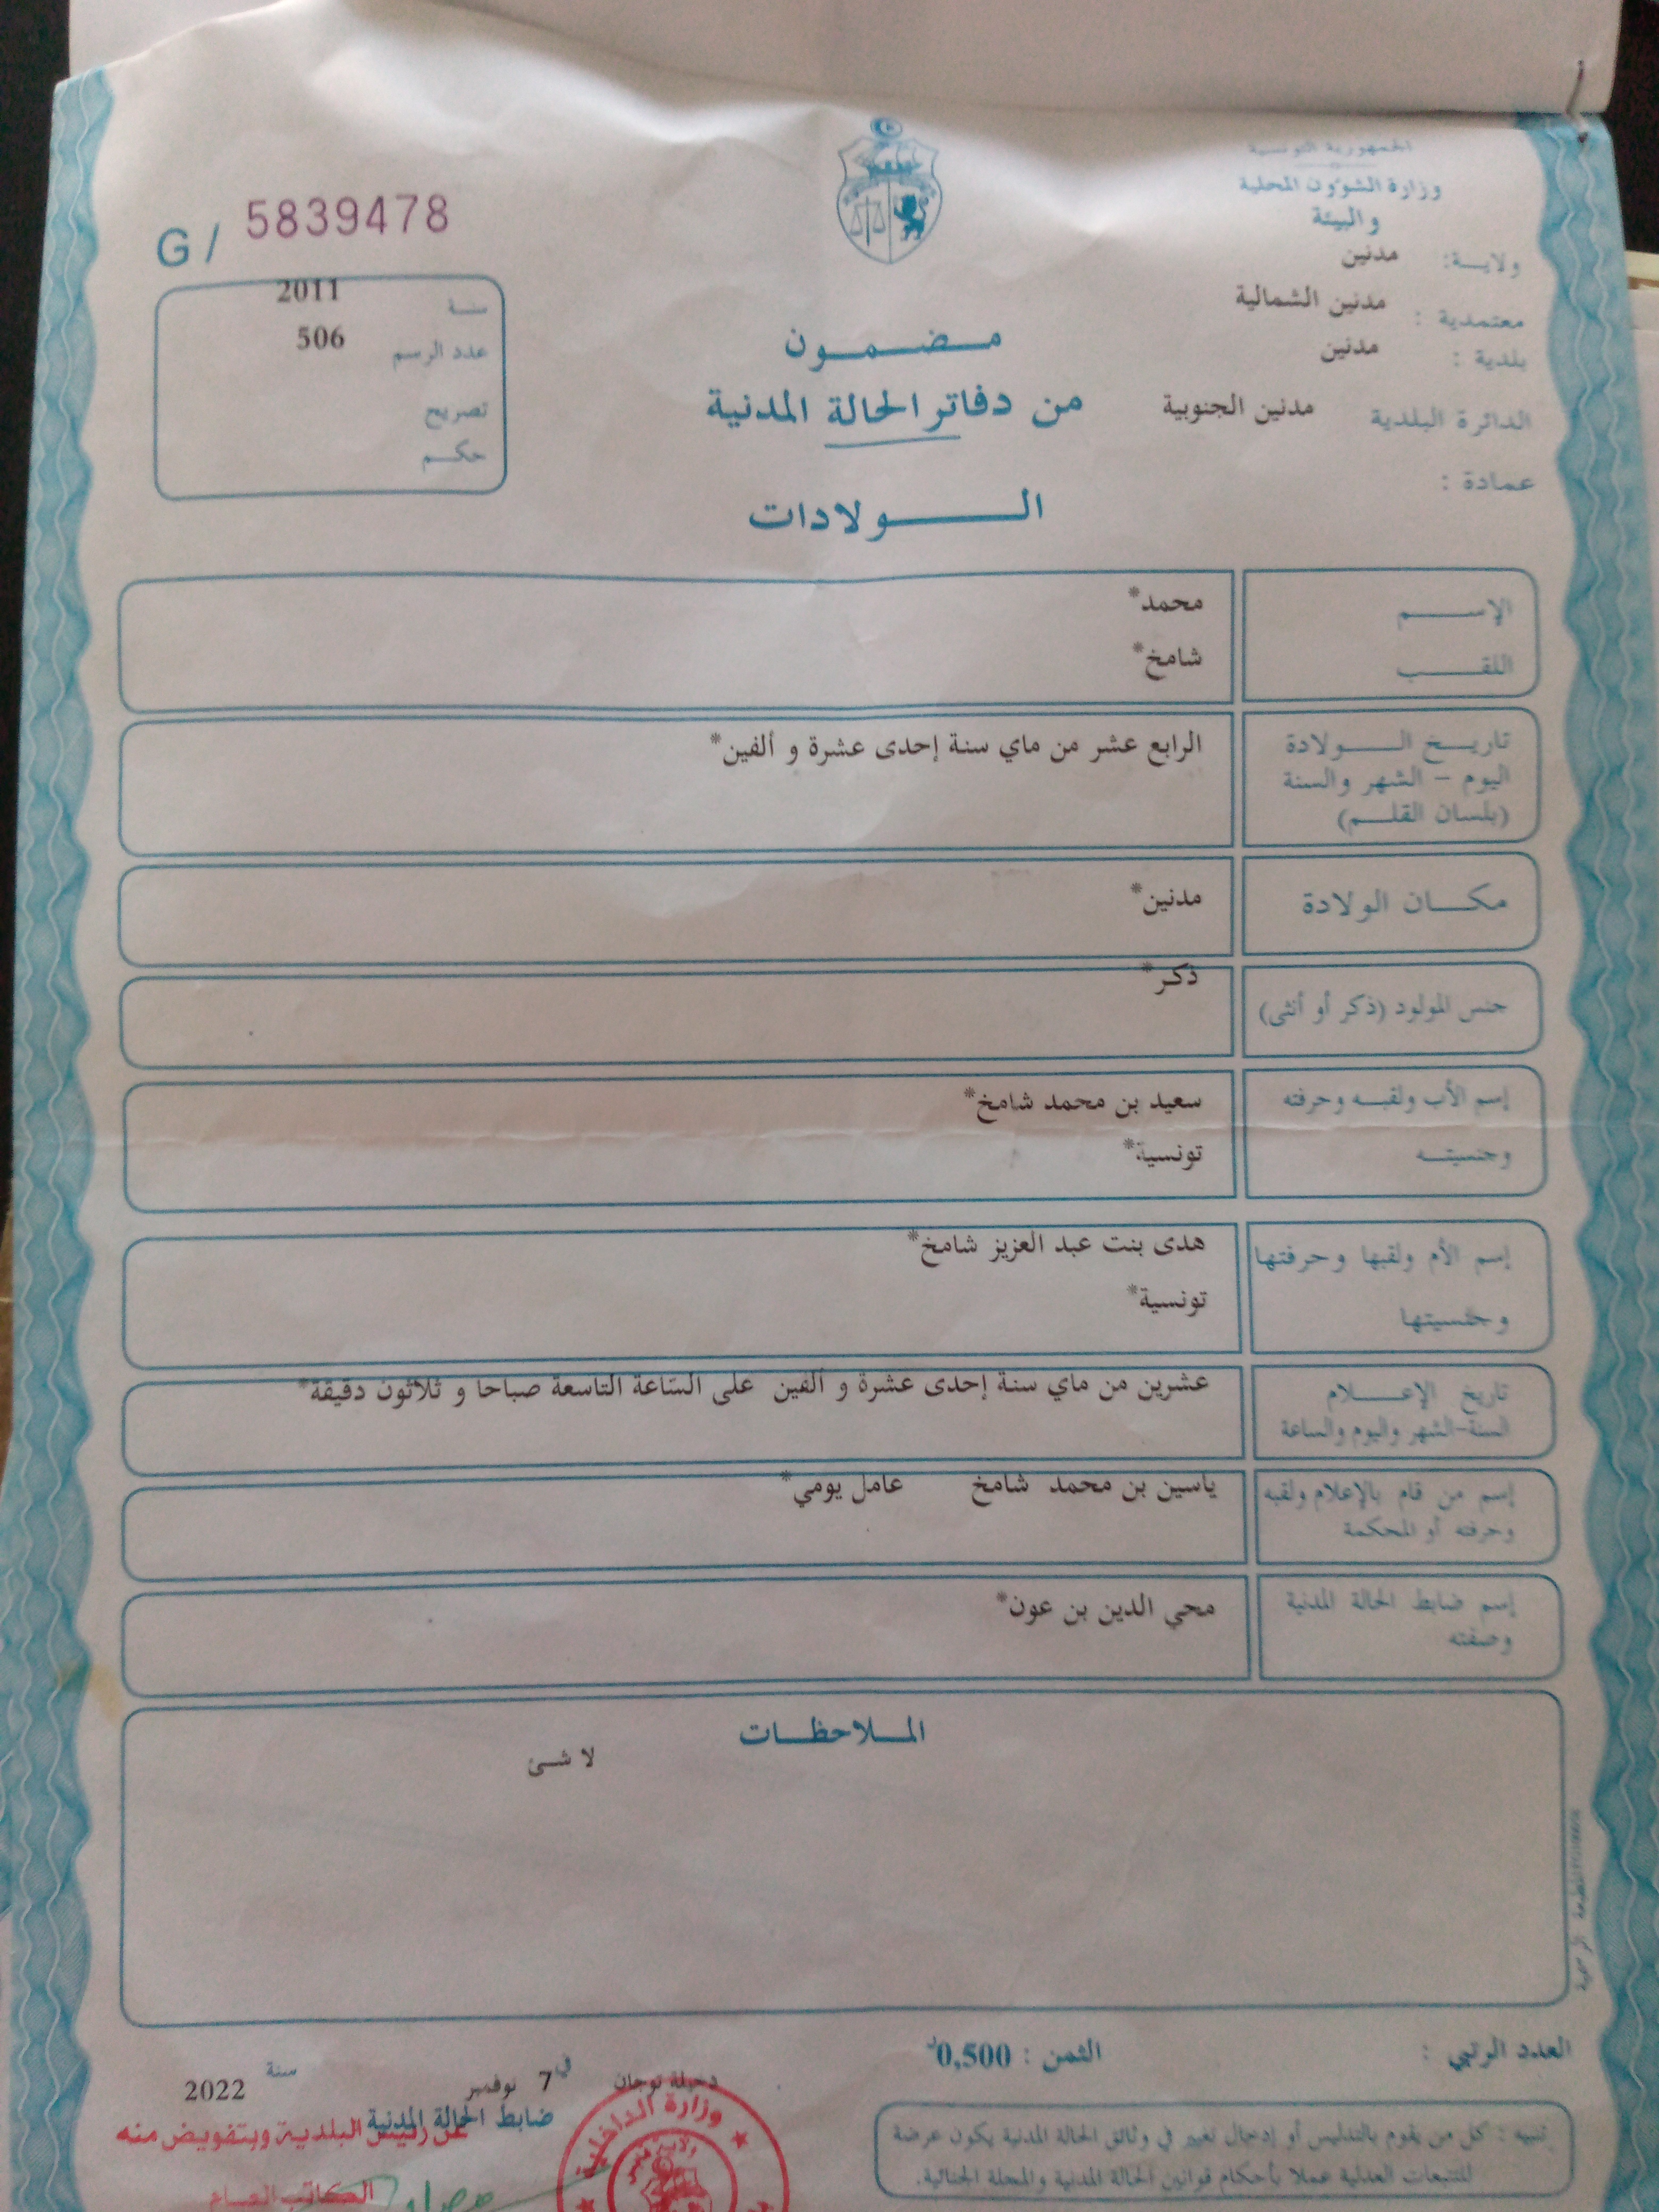 الجمهورية التونسية
وزارة الشؤون المحلية
و البيئة
ولايـة: مدنين
معتمدية : مدنين الشمالية
بلدية : مدنين
الدائرة البلدية مدنين الجنوبية
عمادة :
G / 5839478
سنـة 2011
عدد الرسم 506
تصريح
حكـم
مـضـمـون
من دفاتر الحالة المدنية
الـولادات
الإسـم محمد*
اللقـب شامخ*
تاريـخ الـولادة الرابع عشر من ماي سنة إحدى عشرة و ألفين*
اليوم - الشهر والسنة
(بلسان القلـم)
مكـان الولادة مدنين*
جنس المولود (ذكر أو أنثى) ذكر*
إسم الأب ولقبـه وحرفته سعيد بن محمد شامخ*
وجنسيتـه تونسية*
إسم الأم ولقبها وحرفتها هدى بنت عبد العزيز شامخ*
وجنسيتها تونسية*
تاريخ الإعـلام عشرين من ماي سنة إحدى عشرة و ألفين على الساعة التاسعة صباحا و ثلاثون دقيقة*
السنة-الشهر واليوم والساعة
إسم من قام بالإعلام ولقبه ياسين بن محمد شامخ عامل يومي*
وحرفته أو المحكمة
إسم ضابط الحالة المدنية محي الدين بن عون*
وصفته
الملاحظـات
لا شئ
المطبعة الرسمية
العدد الرتبي :
الثمن : 0,500د
دخيلة توجان في 7 نوفمبر سنة 2022
ضابط الحالة المدنية
عن رئيس البلدية وبتفويض منه
الكاتب العـام
وزارة الداخلية
تنبيه : كل من يقوم بالتدليس أو إدخال تغيير في وثائق الحالة المدنية يكون عرضة
للتتبعات العدلية عملا بأحكام قوانين الحالة المدنية والمجلة الجنائية.